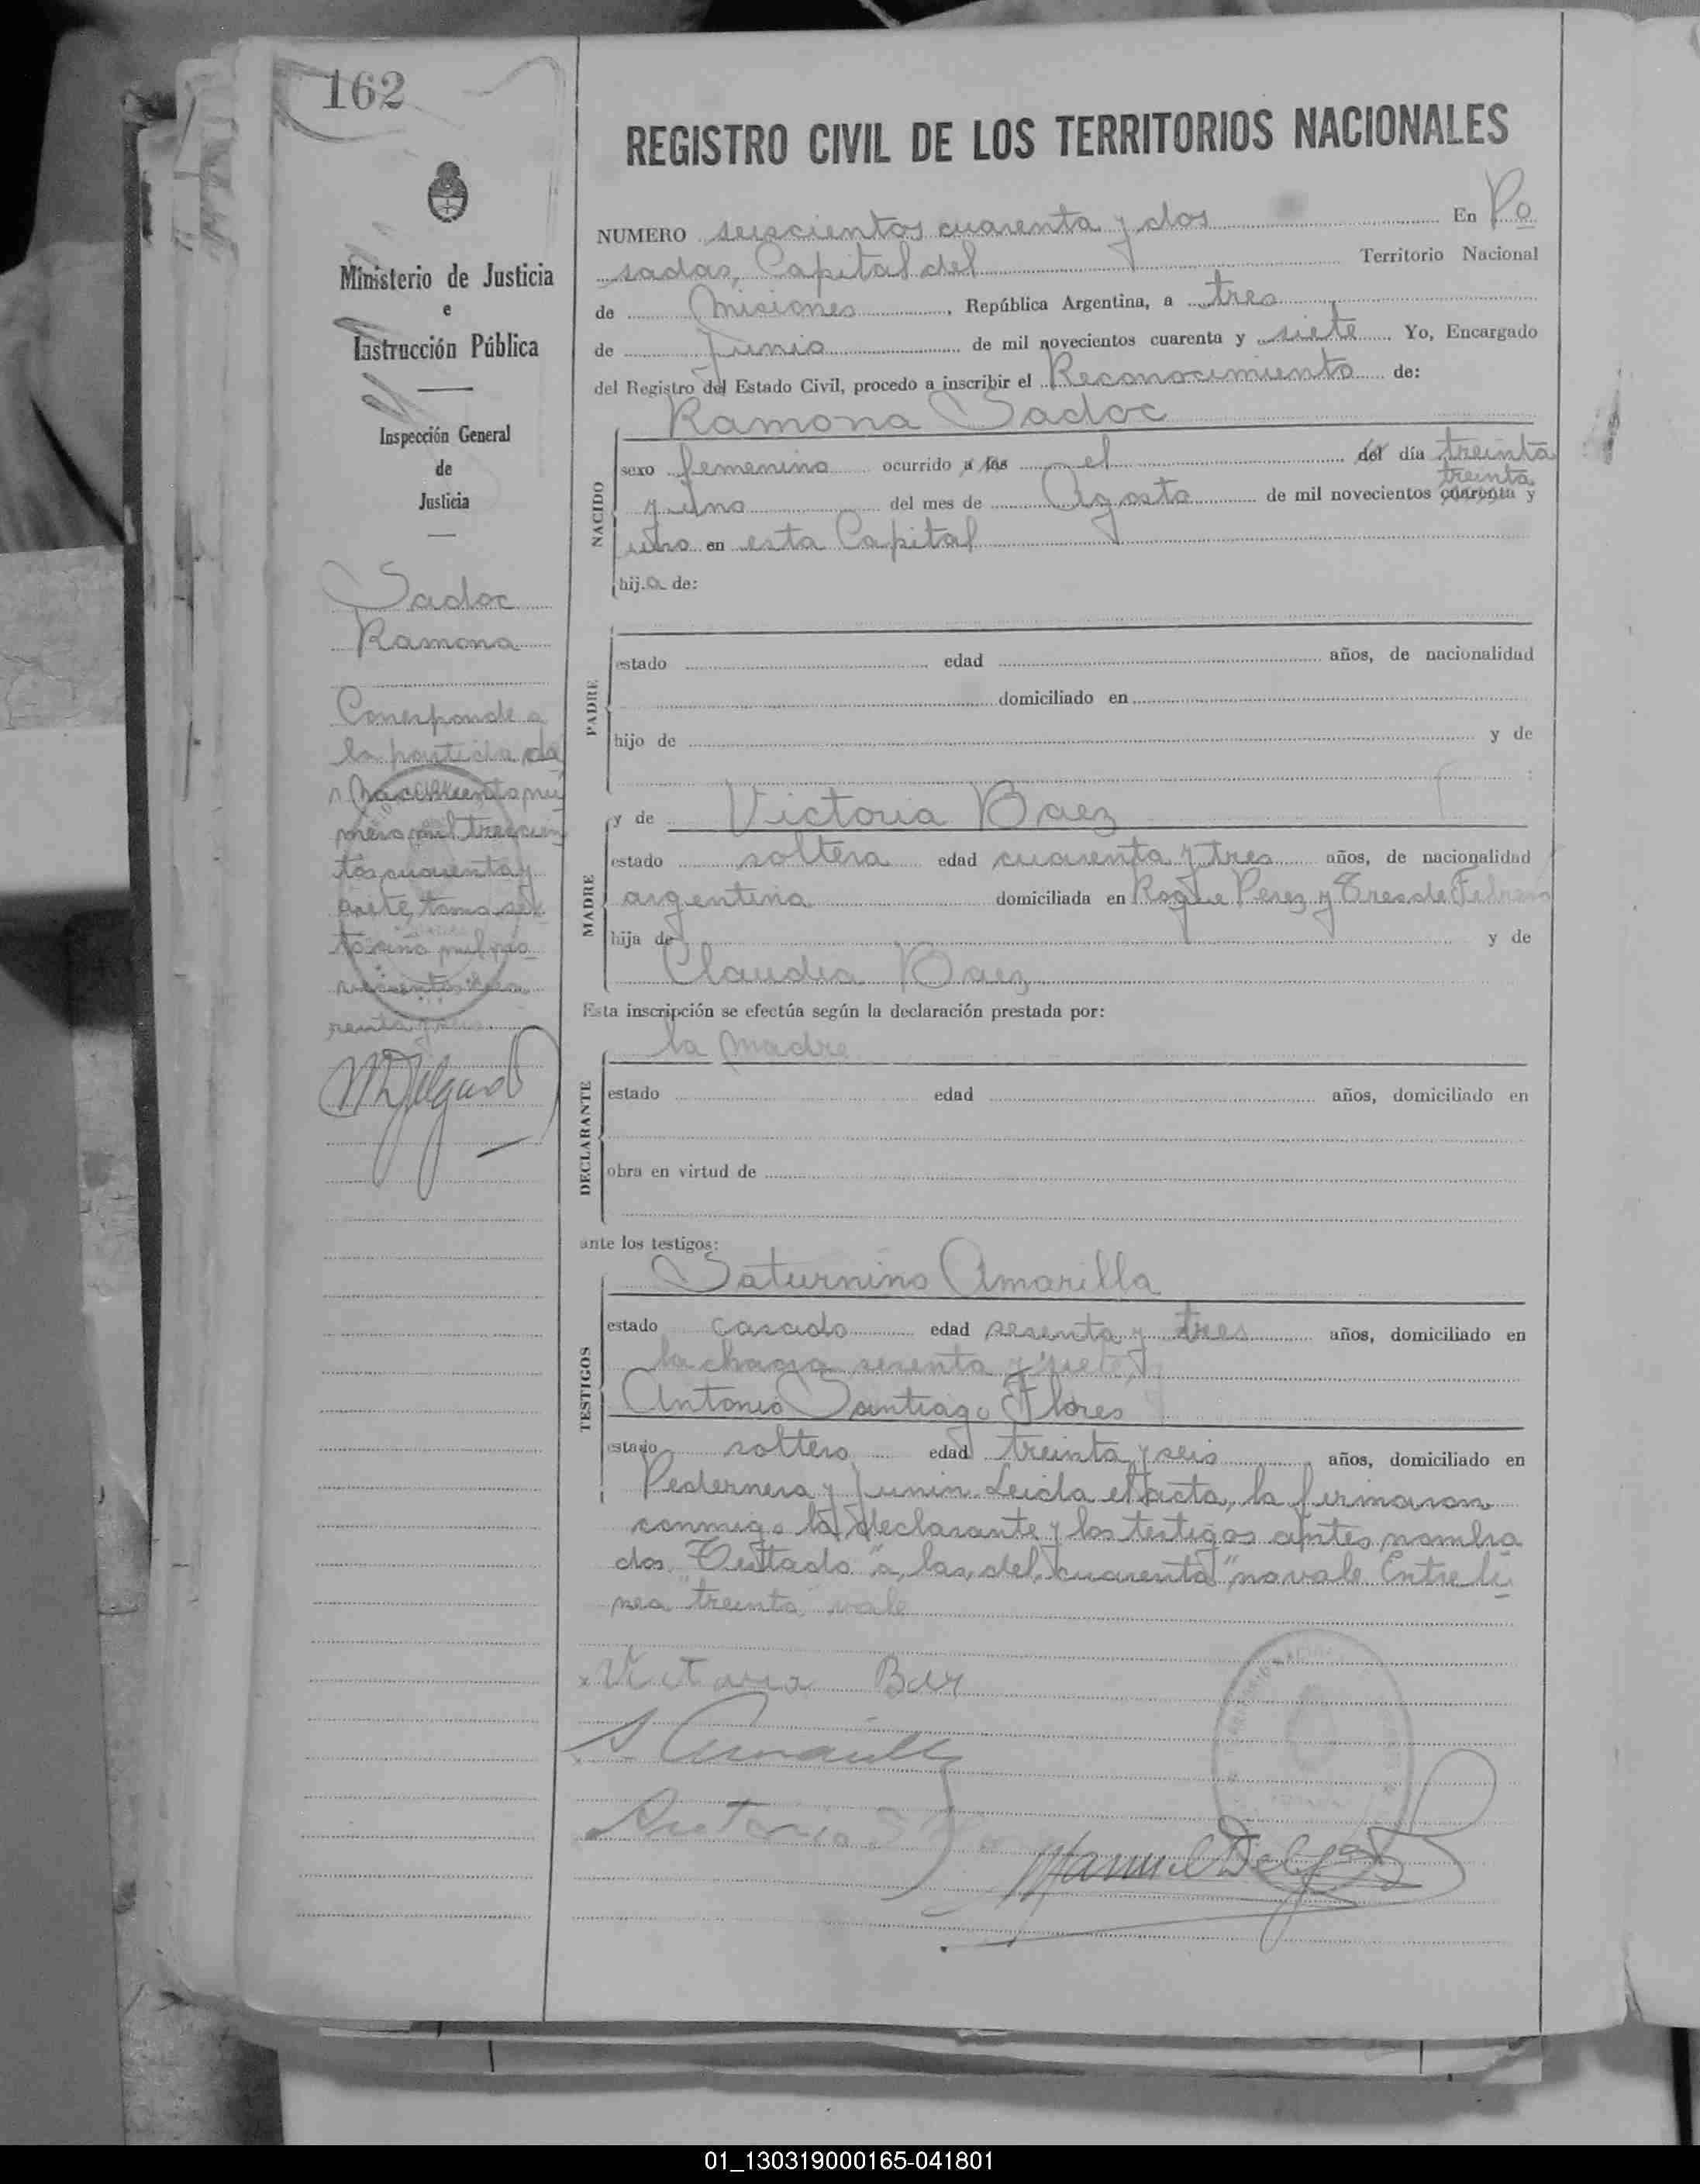 162
REGISTRO CIVIL DE LOS TERRITORIOS NACIONALES
NUMERO seiscientos cuarenta y dos En Po
sadas, Capital del Territorio Nacional
de Misiones, República Argentina, a tres
de Junio de mil novecientos cuarenta y siete Yo, Encargado
del Registro del Estado Civil, procedo a inscribir el Reconocimiento de:
Ramona Sadoc
NACIDO
sexo femenino ocurrido a las el del día treinta
treinta
y uno del mes de Agosto de mil novecientos cuarenta y
en esta Capital
hija de:
PADRE
estado edad años, de nacionalidad
domiciliado en
hijo de y de
MADRE
y de Victoria Baez
estado soltera edad cuarenta y tres años, de nacionalidad
argentina domiciliada en Roque Perez y Tres de Febrero
hija de y de
Claudia Baez
Esta inscripción se efectúa según la declaración prestada por:
DECLARANTE
la madre
estado edad años, domiciliado en
obra en virtud de
ante los testigos:
TESTIGOS
Saturnino Amarilla
estado casado edad sesenta y tres años, domiciliado en
la chacra sesenta y siete y
Antonio Santiago Flores
estado soltero edad treinta y seis años, domiciliado en
Pedernera y Junin. Leida el acta, la firmaron
conmigo la declarante y los testigos antes nombra
dos. Testado "a, las, del, cuarenta", no vale. Entreli
nea "treinta" vale
Victoria Baez
S. Amarilla
Antonio
Manuel Delgado
Ministerio de Justicia
e
Instrucción Pública
Inspección General
de
Justicia
Sadoc
Ramona
Corresponde a
la partida de
nacimiento nú
mero mil trescien
tos cuarenta y
siete, tomo
mil no
vecientos
M Delgado
01_130319000165-041801